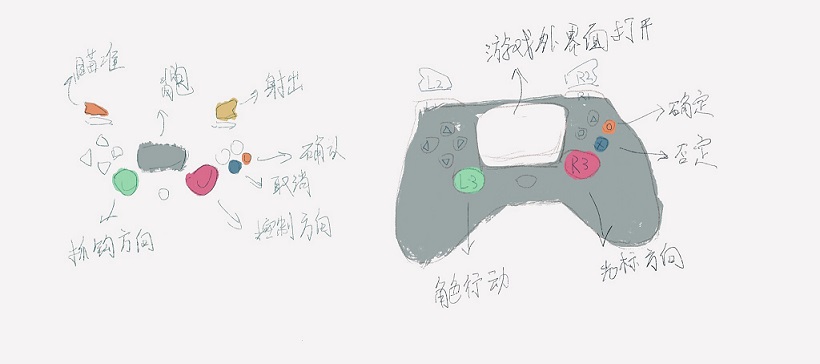 瞄准
背包
射出
确认
取消
抓钩方向
控制方向
游戏外界面打开
L2
R2
R1
确定
否定
L3
R3
角色行动
光标方向